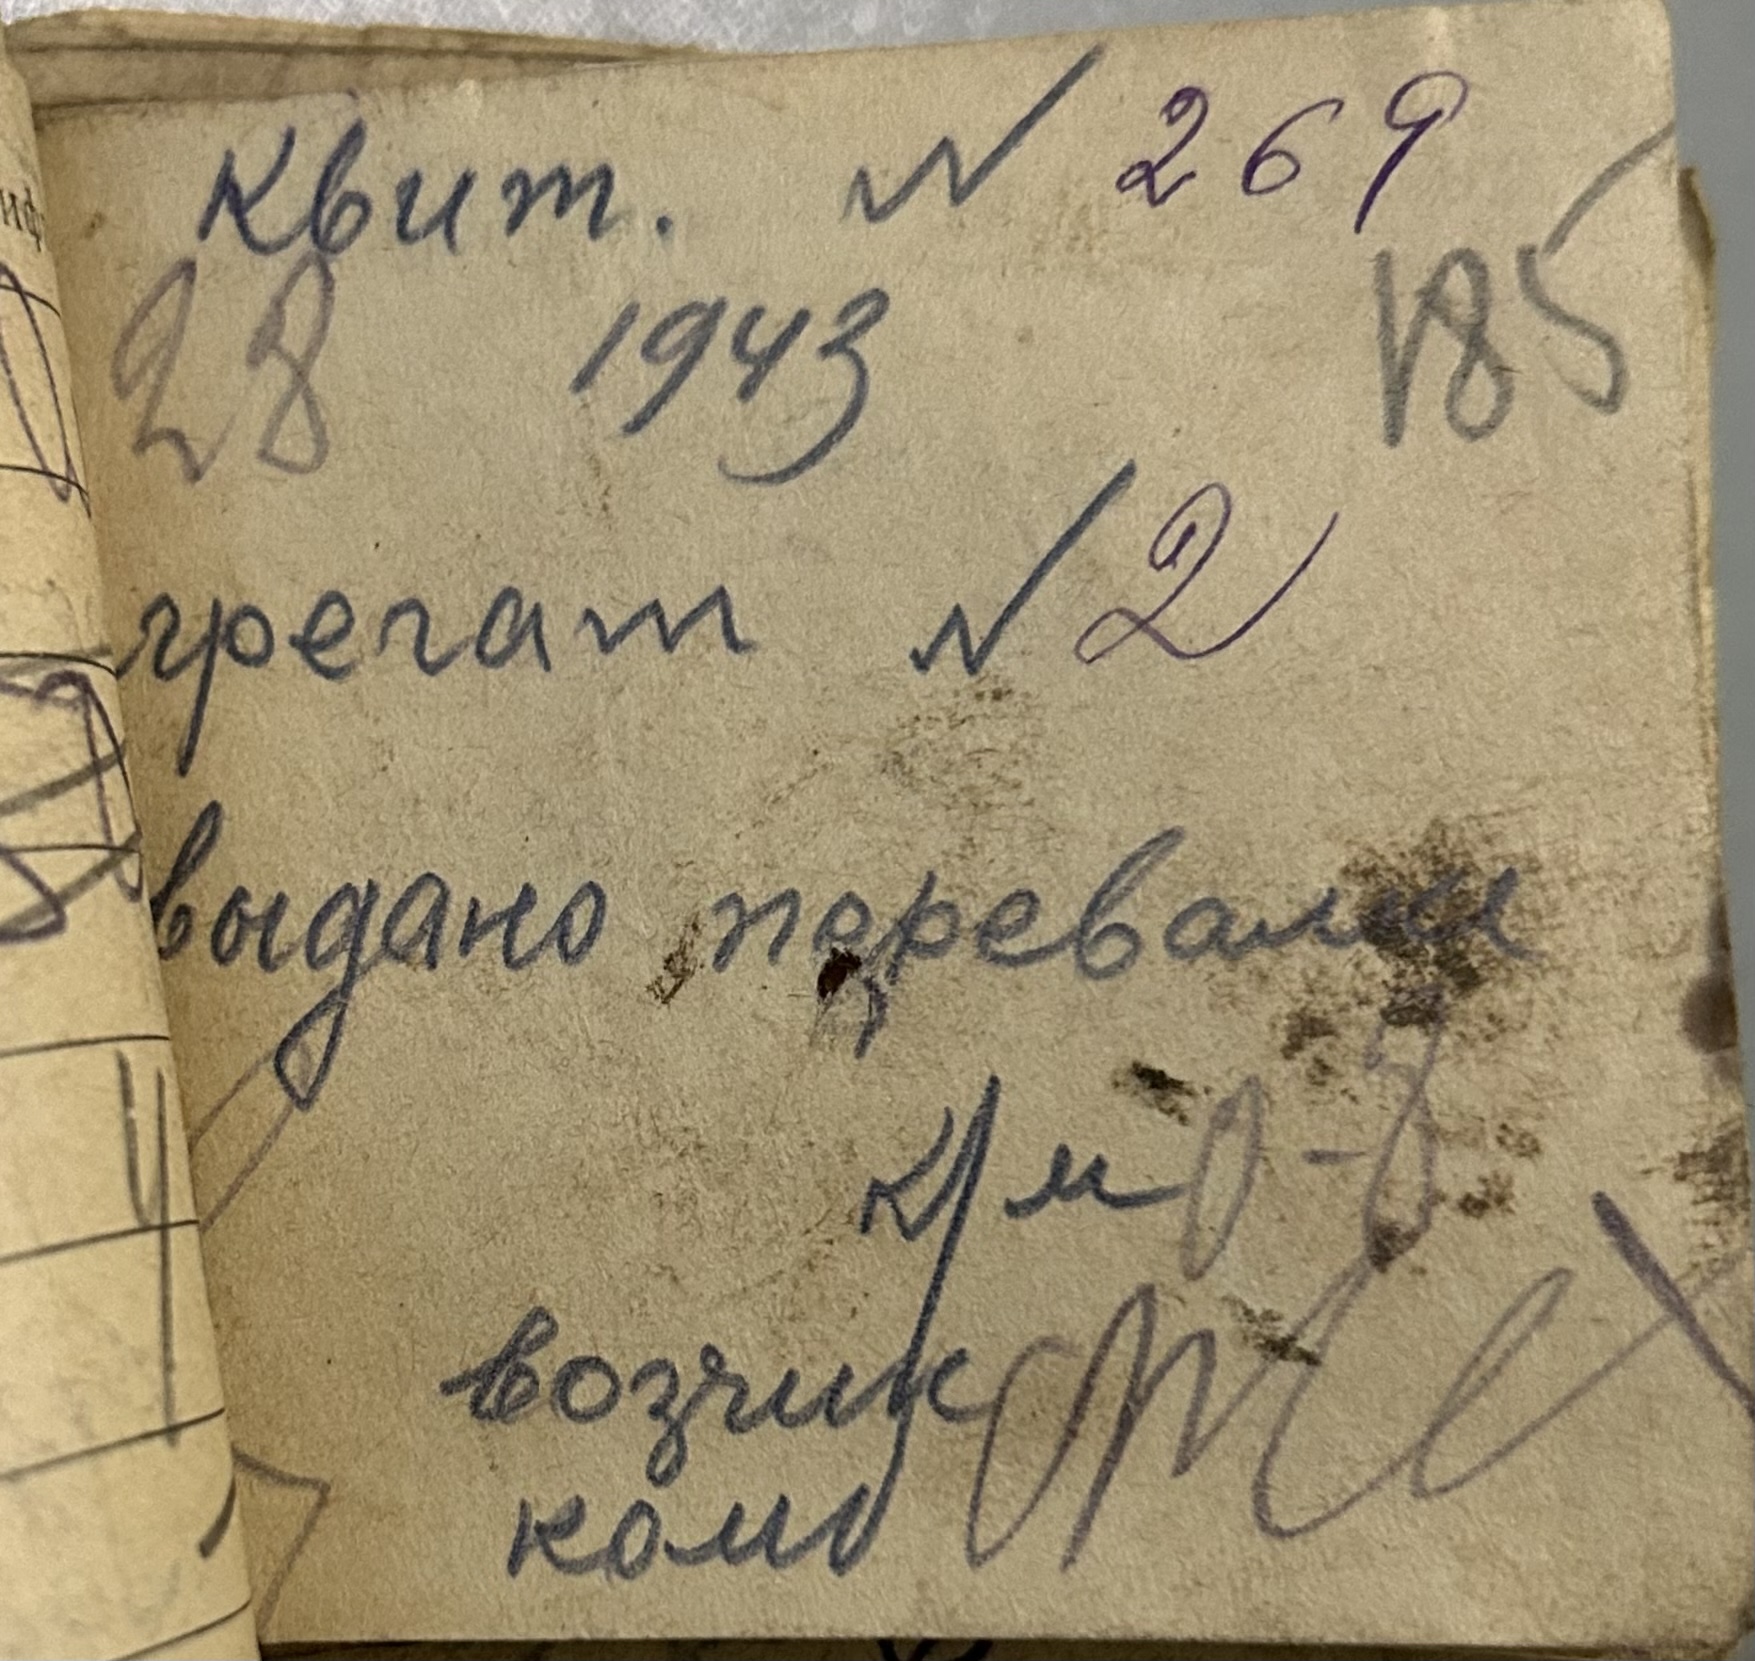 Квит. № 269
28 1943 185
грегат № 2
выдано перевалки
К/м 0-8
возчик
комб